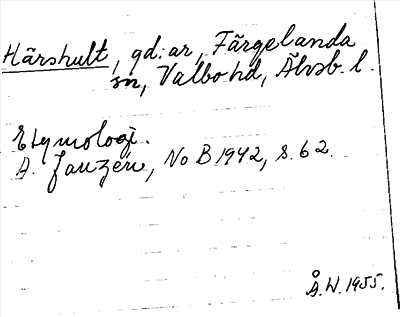 Härshult, gd:ar, Färgelanda
sn, Valbo hd, Älvsb. l.
Etymologi.
A. Janzén, No B 1942, s. 62.
Å. W. 1955.